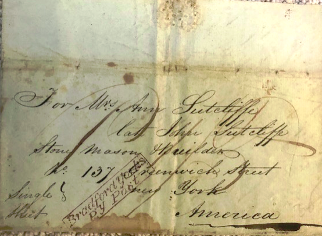 For Mrs. Ann Sutcliffe
late John Sutcliffe
Stone Mason & Builder
No. 137 Greenwich Street
Single New York
Sheet America
Bradford Yorks
Py Post